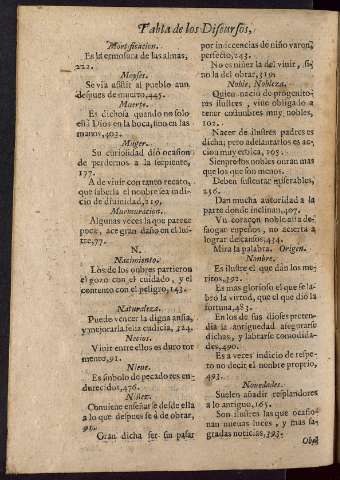 Tabla de los Discursos,
Mortificacion.
Es la ermosura de las almas,
222.
Moyses.
Se via assistir al pueblo aun
despues de muerto, 445.
Muerte.
Es dichosa quando no solo
està Dios en la boca, sino en las
manos, 403.
Muger.
Su curiosidad diò ocasion
de perdernos a la serpiente,
177.
A de vivir con tanto recato,
que saberla el nombre sea indi-
cio de divinidad, 219.
Murmuracion.
Algunas veces la que parece
poca, ace gran daño en el lus-
tre, 77.
N.
Nacimiento.
Los de los onbres partieron
el gozo con el cuidado, y el
contento con el peligro, 143.
Naturaleza.
Puede vencer la digna ansia,
y mejorarla feliz cudicia, 324.
Necios.
Vivir entre ellos es duro tor
mento, 91.
Nieve.
Es sinbolo de pecadores en-
durecidos, 476.
Niñez.
Conviene enseñarse desde ella
a lo que despues se à de obrar,
91.
Gran dicha ser sin pasar
por inocencias de niño varon
perfecto, 243.
No es niñez la del vivir, si
no la del obrar, 319.
Noble, Nobleza.
Quien nació de progenito-
res ilustres, vine obligado a
tener costumbres muy nobles,
102.
Nacer de ilustres padres es
dicha; pero adelantarlos es ac-
cion muy eroica, 105.
Siempre los nobles onran mas
que los que son menos.
Deben sustentar miserables,
256.
Dan mucha autoridad a la
parte donde inclinan, 407.
Un coraçon noble asta de-
saogar enpeños, no acierta a
lograr descansos, 434.
Mira la palabra. Origen.
Nombre.
Es ilustre el que dan los me
ritos, 392.
Es mas glorioso el que se la-
brò la virtud, que el que diò la
fortuna, 483.
En los de sus dioses preten-
dia la antiguedad asegurarse
dichas, y labrarse comodida-
des, 490.
Es a veces indicio de respe-
to no decir el nonbre proprio,
493.
Novedades.
Suelen añadir resplandores
a lo antiguo, 165.
Son ilustres las que ocasio-
nan nuevas luces, y mas sa-
gradas noticias, 393.
Obra